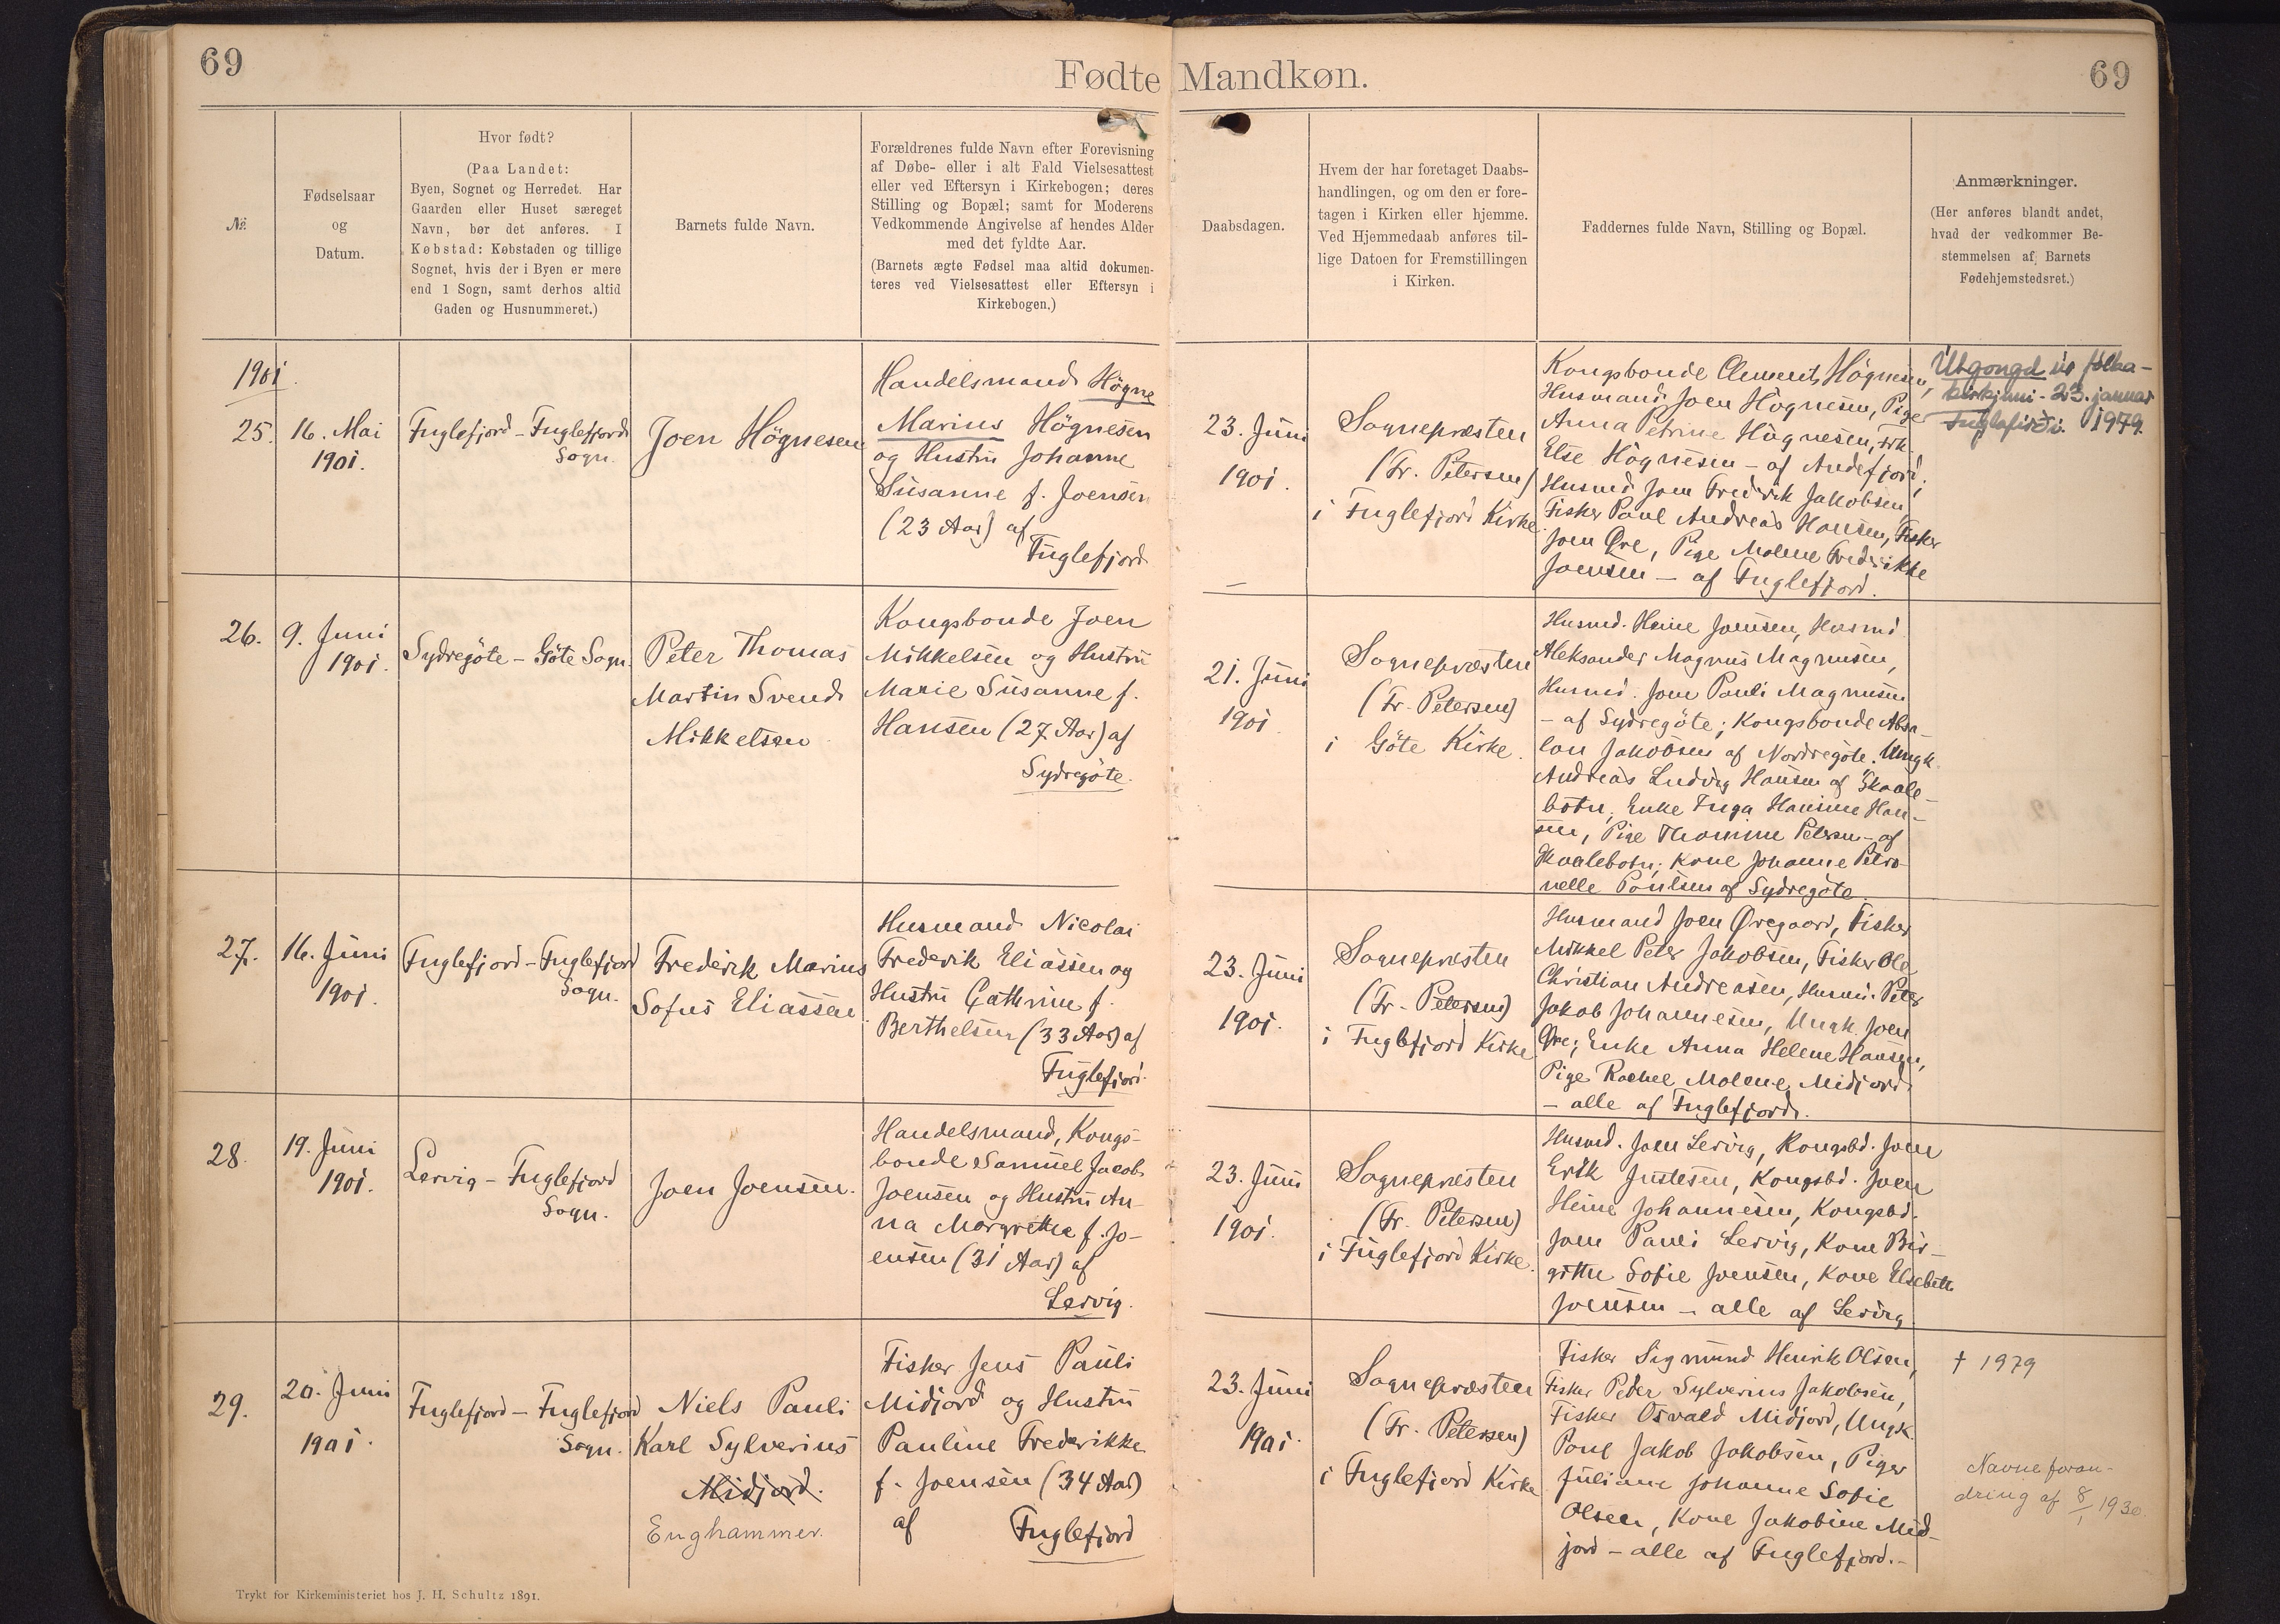 69
Fødte Mandkøn.
69
№.
Fødselsaar
og
Datum.
Hvor født?
(Paa Landet:
Byen, Sognet og Herredet. Har
Gaarden eller Huset særeget
Navn, bør det anføres. I
Købstad: Købstaden og tillige
Sognet, hvis der i Byen er mere
end 1 Sogn, samt derhos altid
Gaden og Husnummeret.)
Barnets fulde Navn.
Forældrenes fulde Navn efter Forevisning
af Døbe- eller i alt Fald Vielsesattest
eller ved Eftersyn i Kirkebogen; deres
Stilling og Bopæl; samt for Moderens
Vedkommende Angivelse af hendes Alder
med det fyldte Aar.
(Barnets ægte Fødsel maa altid dokumen-
teres ved Vielsesattest eller Eftersyn i
Kirkebogen.)
Daabsdagen.
Hvem der har foretaget Daabs-
handlingen, og om den er fore-
tagen i Kirken eller hjemme.
Ved Hjemmedaab anføres til-
lige Datoen for Fremstillingen
i Kirken.
Faddernes fulde Navn, Stilling og Bopæl.
Anmærkninger.
(Her anføres blandt andet,
hvad der vedkommer Be-
stemmelsen af Barnets
Fødehjemstedsret.)
1901.
25.
16. Mai
1901.
Fuglefjord - Fuglefjord
Sogn.
Joen Högnesen
Handelsmand Högne
Marius Högnesen
og Hustru Johanne
Susanne f. Joensen
(23 Aar) af
Fuglefjord
23. Juni
1901.
Sognepræsten
(Fr. Petersen)
i Fuglefjord Kirke.
Kongsbonde Clements Högnesen,
Husmand Joen Högnesen, Pige
Anna Petrine Högnesen, Frk.
Else Högnesen - af Andefjord;
Husmd. Joen Fredrik Jakobsen,
Fisker Poul Andreas Hansen, Fisker
Joen Øre, Pige Malene Fredrikke
Joensen - af Fuglefjord.
Útgongd úr fólka-
kirkjuni - 23. januar
Fuglafirði. 1979.
26.
9. Juni
1901.
Sydregöte - Göte Sogn.
Peter Thomas
Martin Svend
Mikkelsen
Kongsbonde Joen
Mikkelsen og Hustru
Marie Susanne f.
Hansen (27 Aar) af
Sydregöte.
21. Juni
1901
Sognepræsten
(Fr. Petersen)
i Göte Kirke.
Husmd. Heine Joensen, Husmd.
Aleksander Magnus Magnusen,
Husmd. Joen Pauli Magnusen
- af Sydregöte; Kongsbonde Absa-
lon Jakobsen af Nordregöte. Ungk.
Andreas Ludvig Hansen af Skaale-
botn, Enke Inga Hansine Han-
sen, Pige Thomine Petersen - af
Skaalebotn; Kone Johanne Petro-
nelle Poulsen af Sydregöte.
27.
16. Juni
1901.
Fuglefjord - Fuglefjord
Sogn.
Frederik Marius
Sofus Eliassen
Husmand Nicolai
Frederik Eliassen og
Hustru Cathrine f.
Berthelsen (33 Aar) af
Fuglefjord.
23. Juni
1901.
Sognepræsten
(Fr. Petersen)
i Fuglefjord Kirke
Husmand Joen Øregaard, Fisker
Mikkel Peter Jakobsen, Fisker Ole
Christian Andreasen, Husmd. Peter
Jakob Johannesen, Ungk. Joen
Øre; Enke Anna Helene Hansen,
Pige Rachel Malene Midjord
- alle af Fuglefjord.
28.
19. Juni
1901.
Lervig - Fuglefjord
Sogn.
Joen Joensen.
Handelsmand, Kongs-
bonde Samuel Jacob
Joensen og Hustru An-
na Margrethe f. Jo-
ensen (31 Aar) af
Lervig.
23. Juni
1901.
Sognepræsten
(Fr. Petersen)
i Fuglefjord Kirke.
Husmd. Joen Lervig, Kongsbd. Joen
Erik Justesen, Kongsbd. Joen
Heine Johannesen, Kongsbd.
Joen Pauli Lervig, Kone Bir-
gitte Sofie Joensen, Kone Elsebeth
Joensen - alle af Lervig
29.
20. Juni
1901.
Fuglefjord - Fuglefjord
Sogn.
Niels Pauli
Karl Sylverius
Midjord.
Enghammer.
Fisker Jens Pauli
Midjord og Hustru
Pauline Frederikke
f. Joensen (34 Aar)
af Fuglefjord
23. Juni
1901.
Sognepræsten
(Fr. Petersen)
i Fuglefjord Kirke
Fisker Sigmund Henrik Olsen,
Fisker Peder Sylverius Jakobsen,
Fisker Osvald Midjord, Ungk.
Poul Jakob Jakobsen, Piger
Juliane Johanne Sofie
Olsen, Kone Jakobine Mid-
jord - alle af Fuglefjord.-
† 1979
Navneforan-
dring af 8/1 1930.
Trykt for Kirkeministeriet hos J. H. Schultz 1891.